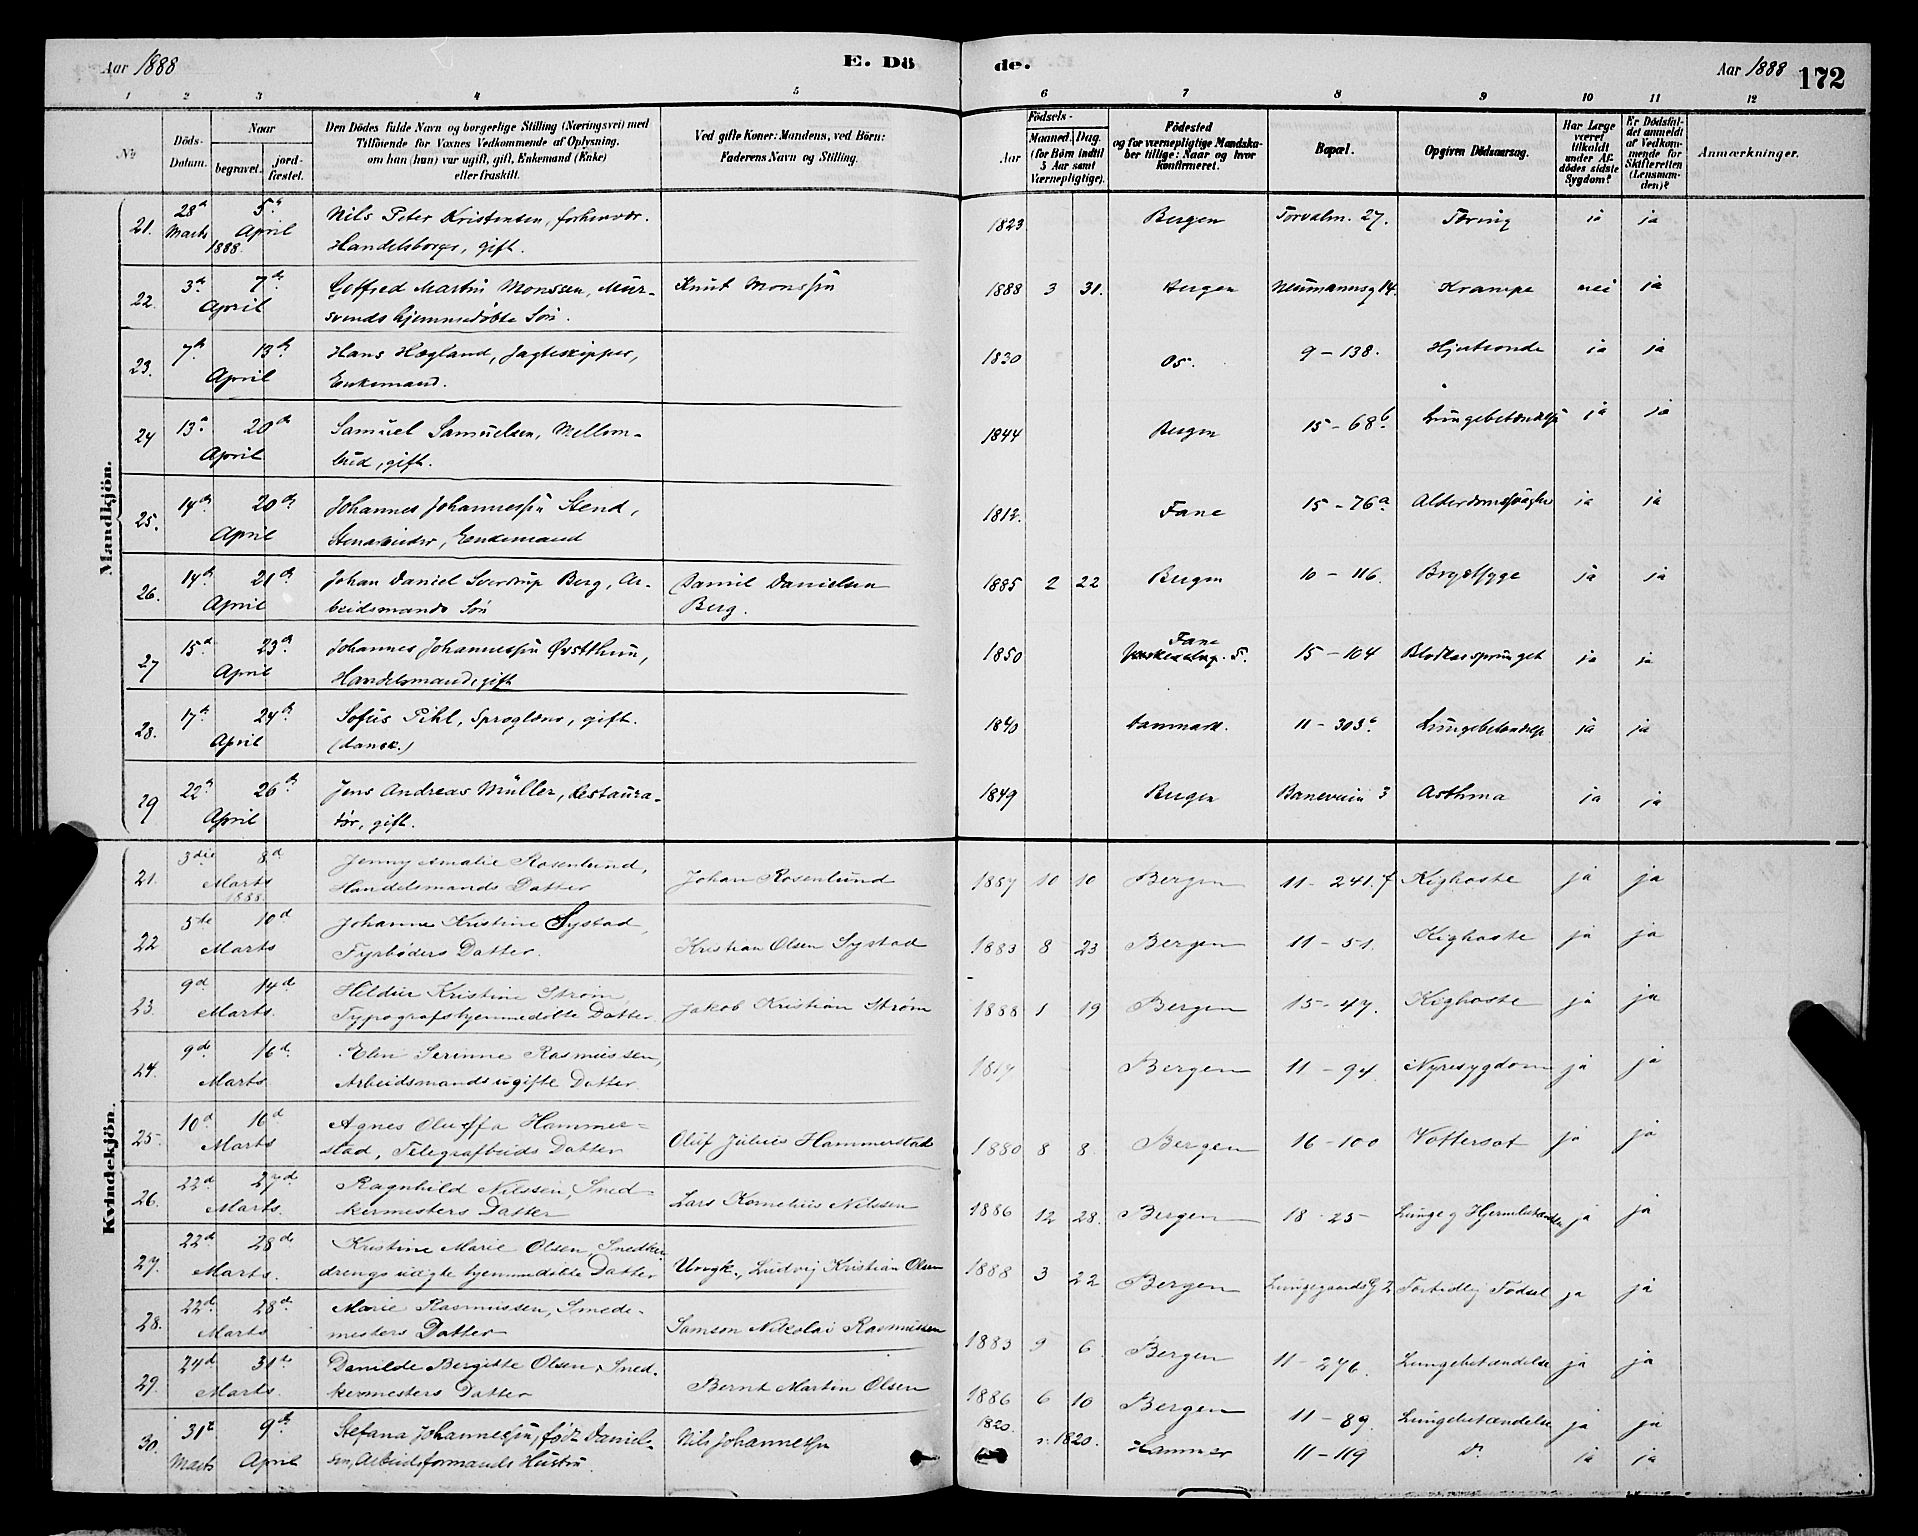 Aar 1888 E. Dö de. Aar 1888 172
1 2 3 4 5 6 7 8 9 10 11 12
№ Döds-Datum. Naar begravet. jordfæstet. Den Dödes fulde Navn og borgerlige Stilling (Næringsvei) med Tilföiende for Voxnes Vedkommende af Oplysning, om han (hun) var ugift, gift, Enkemand (Enke) eller fraskilt. Ved gifte Koner: Mandens, ved Börn: Faderens Navn og Stilling. Födsels- Aar Maaned. Dag. (for Börn indtil 5 Aar samt Værnepligtige). Födested og for værnepligtige Mandskaber tillige: Naar og hvor konfirmeret. Bopæl. Opgiven Dödsaarsag. Har Læge været tilkaldt under Afdødes sidste Sygdom? Er Dödsfaldet anmeldt af Vedkommende for Skifteretten (Lensmanden)? Anmærkninger.
Mandkjön.
21. 28de Marts 1888. 5te April Nils Peter Kristensen, forhenvær. 1823 Bergen Torvalm. 27. Tæring ja ja
Handelsborger, gift.
22. 3de April 7de Gotfred Martin Monssen, Mur- Knut Monssen 1888 3 31. Bergen Neumannsg 14. Krampe nei ja
svends hjemmedøbte Søn.
23. 7de April 13de Hans Hægland, Jagteskipper, 1830 Os. 9 - 138. Hjertsonde ja ja
Enkemand.
24 13de April 20de Samuel Samuelsen, Mellom- 1844 Bergen 15 - 68b Lungebetændelse ja ja
bud, gift.
25. 14de April 20de Johannes Johannessen Stend, 1812. Fane 15 - 76a Alderdomssvaghed ja ja
Stenarbeider, Enkemand
26. 14de April 21de Johan Daniel Sverdrup Berg, Ar- Daniel Danielsen 1885 2 22 Bergen 10 - 116. Brystsyge ja ja
beidsmands Søn Berg.
27 15de April 23de Johannes Johannessen Østthun, 1850 Fane 15 - 104 Blodkarsprunget ja ja
Handelsmand, gift
28. 17de April 24de Sofus Pihl, Sproglærer, gift. 1840 Danmark. 11 - 303b Lungebetændelse ja ja
(dansk.)
29 22de April 26de Jens Andreas Müller, Restaura- 1849 Bergen Baneveien 3 Asthma ja ja
tør, gift.
Kvindekjön.
21. 3die Marts 1888. 8d Jenny Amalie Rosenlund, Johan Rosenlund 1887 10 10 Bergen 11 - 241.f Kighoste ja ja
Handelsmands Datter
22 5de Marts 10d Johanne Kristine Systad, Kristian Olsen Systad 1883 8 23 Bergen 11 - 51. Kighoste ja ja
Fyrbøders Datter.
23. 9d Marts. 14de Hildur Kristine Strøm, Jakob Kristian Strøm 1888 1 19 Bergen 15 - 47. Kighoste ja ja
Typografs hjemmedøbte Datter.
24. 9de Marts 16d. Elen Serinne Rasmussen, 1817 Bergen 11 - 94. Nyresygdom ja ja
Arbeidsmands ugifte Datter.
25. 10d Marts 16d Agnes Oluffa Hammer- Oluf Julius Hammerstad 1880 8 8. Bergen 16 - 100 Vattersot ja ja
stad, Telegrafbuds Datter
26. 22d Marts. 27de Ragnhild Nilssen, Sned- Lars Kornelius Nilssen 1886 12 28. Bergen 18 - 25 Lunge g Hjernebetændelse ja ja
kermesters Datter
27. 22d Marts. 28de Kristine Marie Olsen, Snedker- Ungk., Ludvig Kristian Olsen 1888 3 22 Bergen Lungegaards G 2 Fortidlig Fødsel ja ja
drengs uægte hjemmedøbte Datter
28. 22d. Marts 28d. Marie Rasmussen, Smede- Samson Nikolai Rasmussen 1883 9 6. Bergen 11 - 276. Lungebetændelse ja ja
mesters Datter
29. 24d Marts. 31te Danilde Bergitte Olsen, Sned- Bernt Martin Olsen 1886 6 10 Bergen 11 - 89. Lungebetændelse ja ja
kermesters Datter
30. 31te Marts 9de April Stefana Johannessen, født Daniel- Nils Johannessen 1820. 1820. Hammer 11 - 119 do. ja ja
sen, Arbeidsformands Hustru.